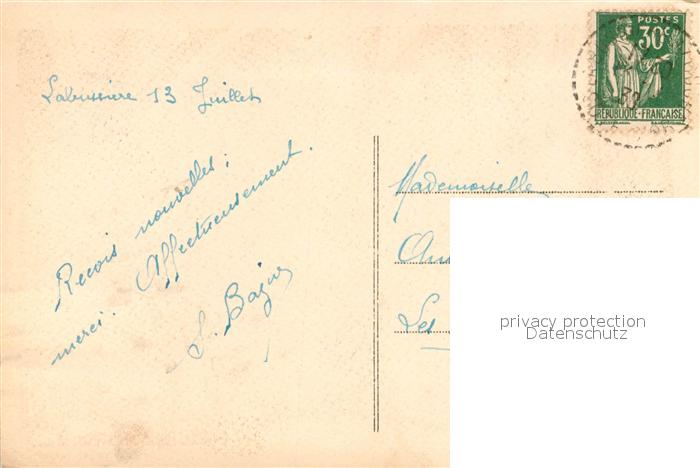 POSTES
30c
RÉPUBLIQUE-FRANÇAISE
Labussière 13 Juillet
Recois nouvelles;
merci. Affectueusement.
Mademoiselle
Les
privacy protection
Datenschutz